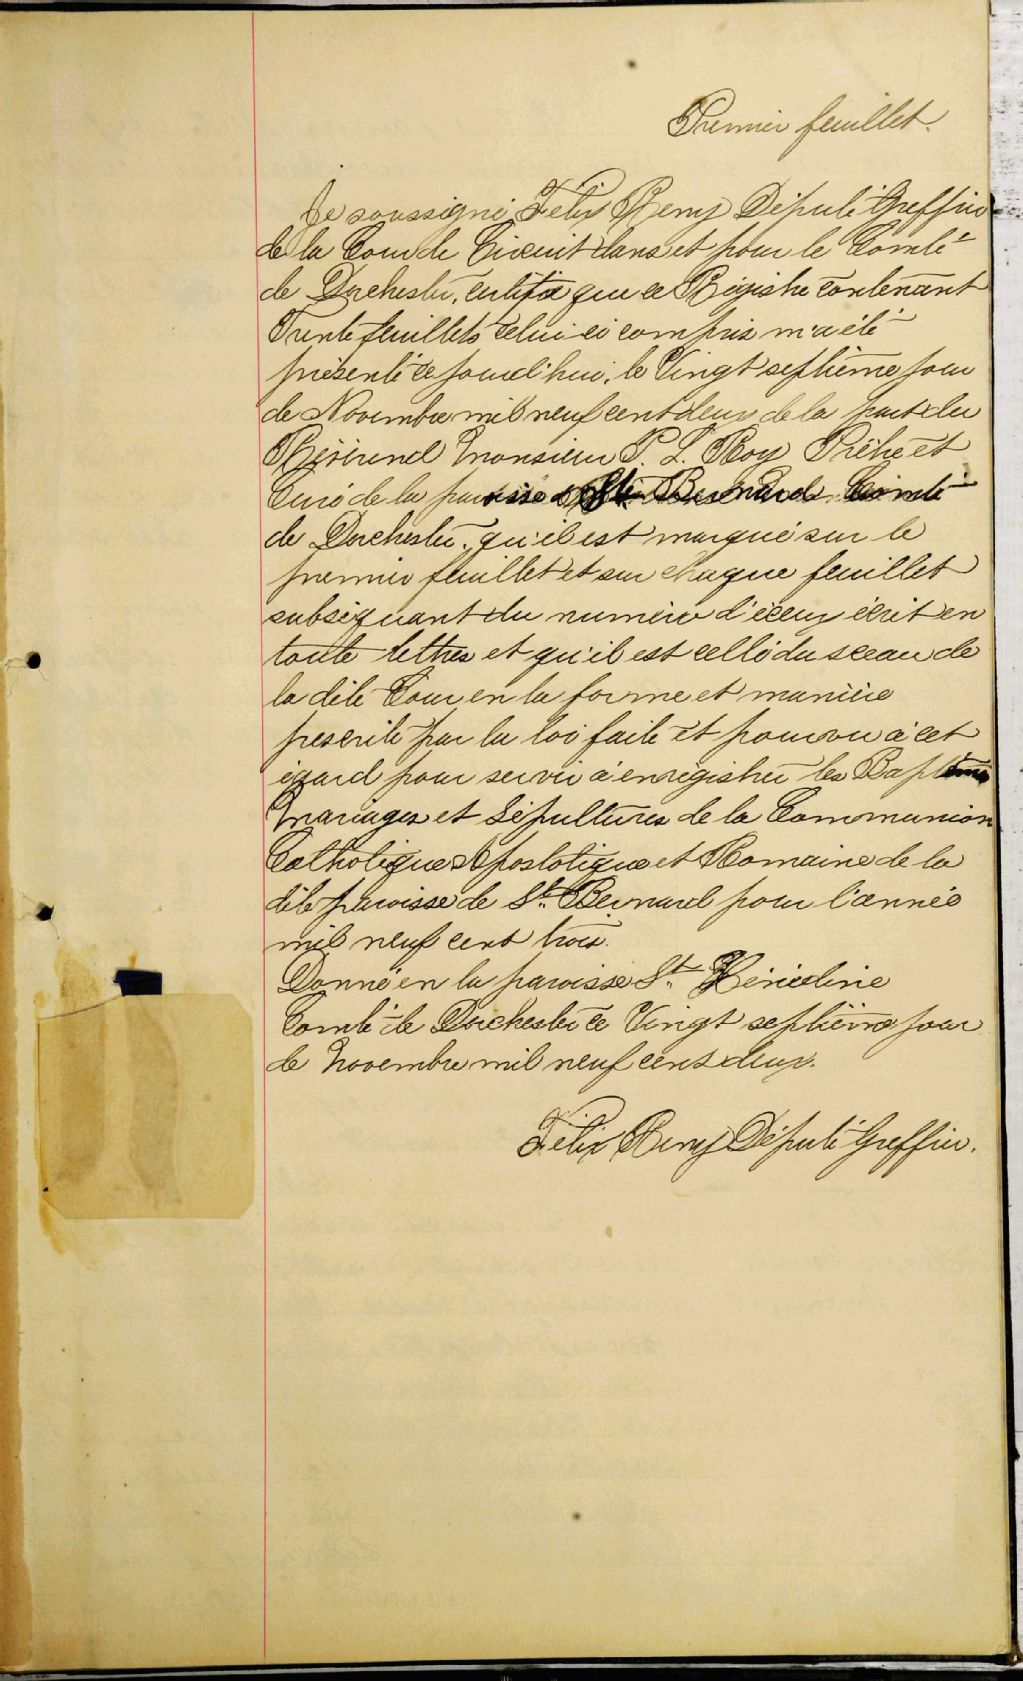 Premier feuillet.
Je soussigné, Felix Remy Député Greffier
de la Cour de Circuit dans et pour le Comté
de Dorchester, certifie que ce Régistre contenant
Trente feuillets celui-ci compris m'a été
présenté ce jourd'hui, le Vingt septième jour
de Novembre mil neuf cent deux de la part du
Révérend Monsieur P. L. Roy Prêtre et
Curé de la paroisse de St. Bernard Comté
de Dorchester, qu'il est marqué sur le
premier feuillet et sur chaque feuillet
subséquant du numéro d'iceux écrit en
toute lettres et qu'il est cellé du sceau de
la dite Cour, en la forme et manière
prescrite par la loi faite et pourvu à cet
égard pour servir à enrégistrer les Baptêmes
Mariages et Sépultures de la Communion
Catholique Apostolique et Romaine de la
dite paroisse de St. Bernard pour l'année
mil neuf cent trois.
Donné en la paroisse St. Hénédine
Comté de Dorchester ce Vingt septième jour
de Novembre mil neuf cent deux.
Felix Remy Député Greffier.